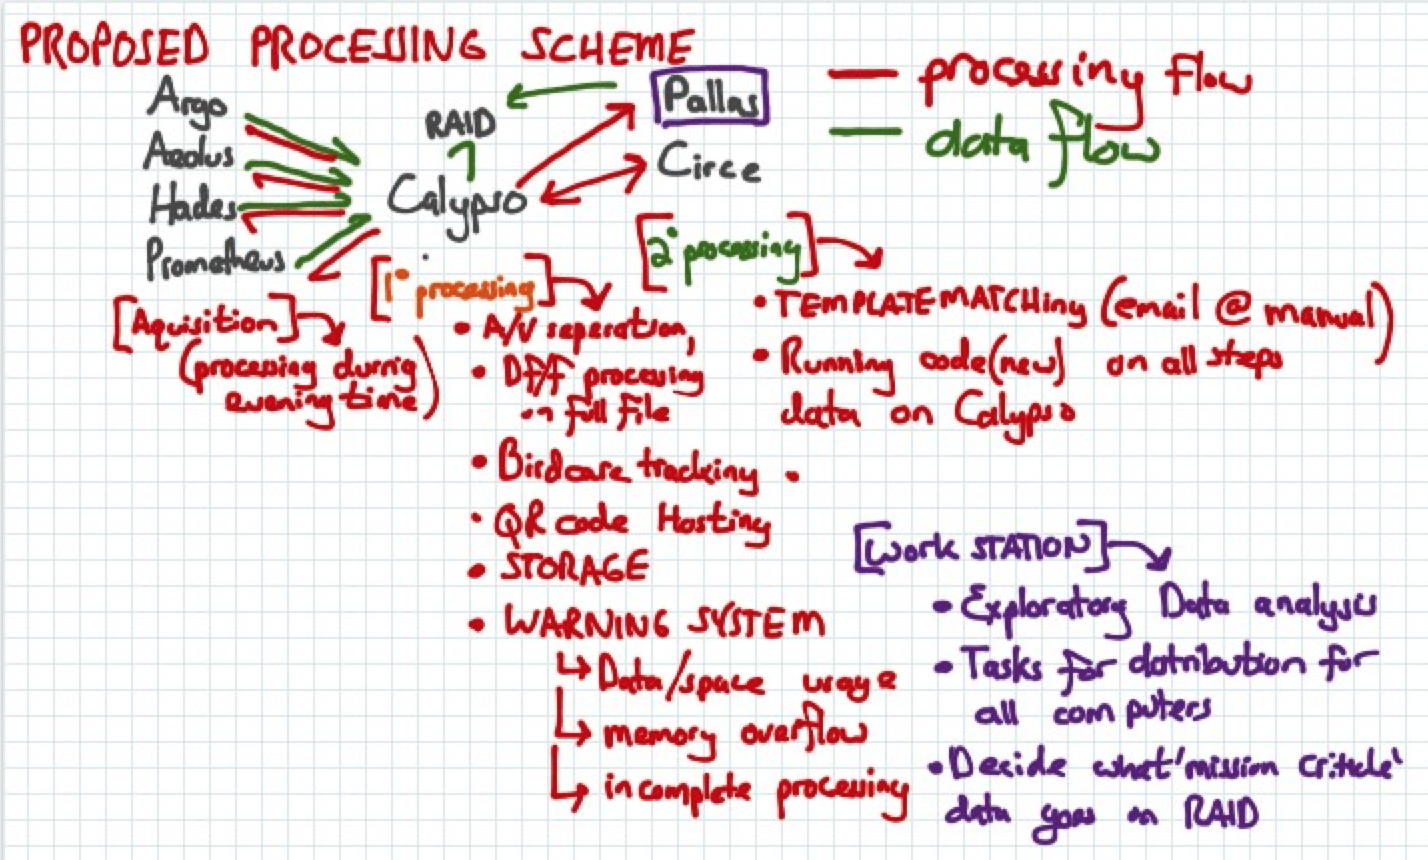 PROPOSED PROCESSING SCHEME
Argo
Aeolus
Hades
Prometheus
RAID
Calypso
Pallas
Circe
processing flow
data flow
[Aquisition]
(processing during
evening time)
[1° processing]
• A/V seperation,
• DF/F processing
on full file
• Birdcare tracking •
• QR code Hosting
• STORAGE
• WARNING SYSTEM
Data/space usage
memory overflow
incomplete processing
[2° processing]
• TEMPLATE MATCHing (email @ manual)
• Running code(new) on all steps
data on Calypso
[Work STATION]
• Exploratory Data analysis
• Tasks for distribution for
all computers
• Decide what 'mission criticle'
data goes on RAID